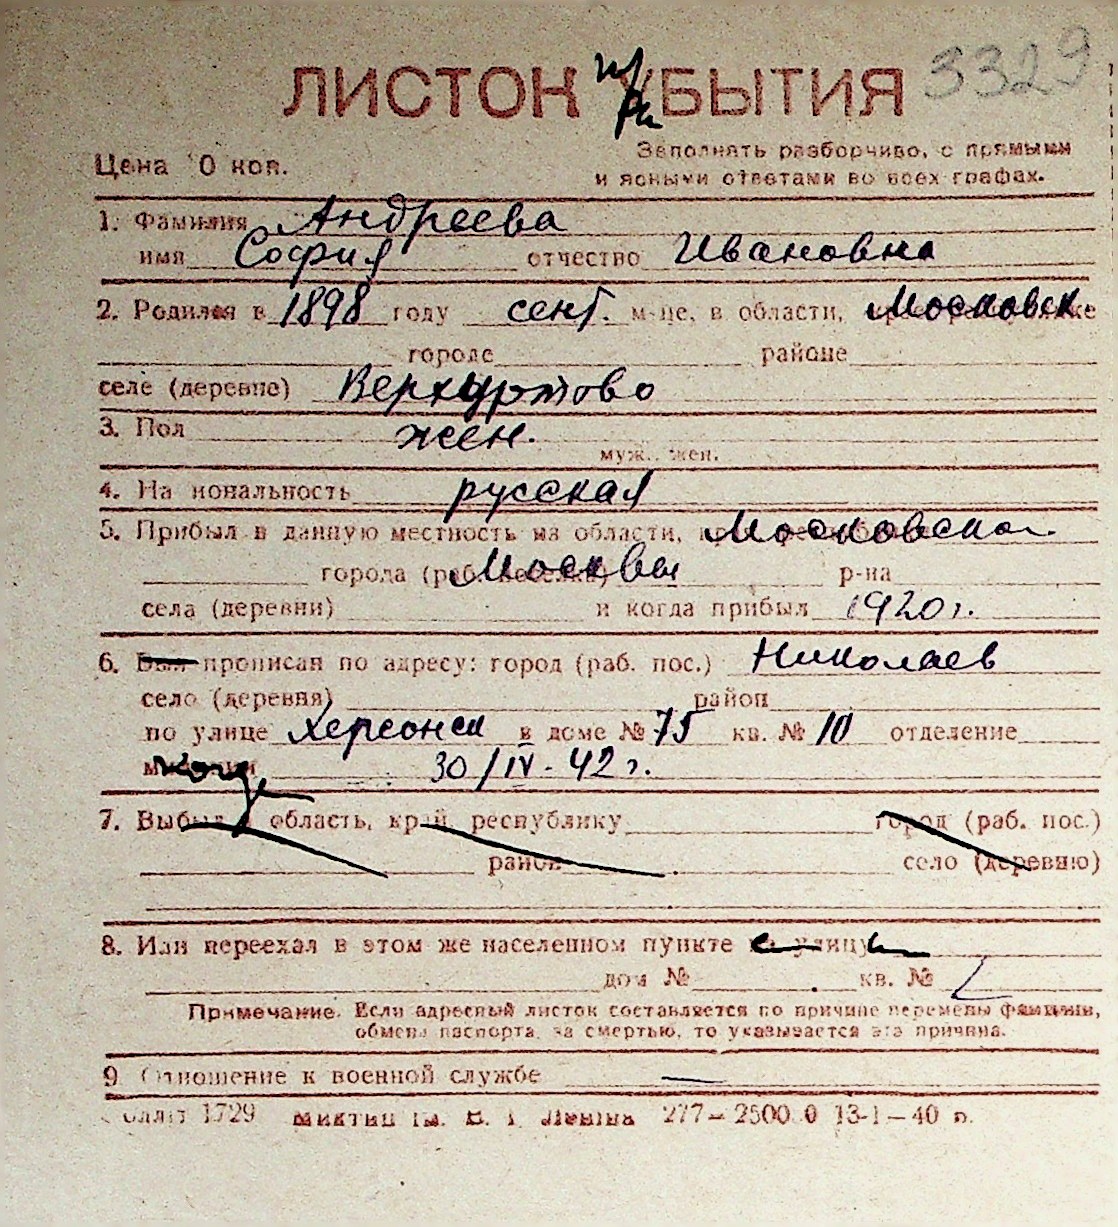 ЛИСТОК при БЫТИЯ 3329
Цена 0 коп.
Заполнять разборчиво, с прямыми
и ясными ответами во всех графах.
1. Фамилия Андреева
имя София отчество Ивановна
2. Родился в 1898 году сент. м-це, в области, Московск
городе районе
селе (деревне)
3. Пол жен.
муж. жен.
4. На иональность русская
5. Прибыл в данную местность из области, Московской
города (раб. Москвы р-на
села (деревни) и когда прибыл 1920 г.
6. Был прописан по адресу: город (раб. пос.) Николаев
село (деревня) район
по улице Херсонск в доме № 75 кв. № 10 отделение
30/IV-42 г.
7. Выбыл в область, край, республику город (раб. пос.)
район село (деревню)
8. Или переехал в этом же населенном пункте с улицы
дом № кв. №
Примечание. Если адресный листок составляется по причине перемены фамилии,
обмена паспорта, за смертью, то указывается эта причина.
9 Отношение к военной службе —
1729 277–2500 0 13-1–40 г.